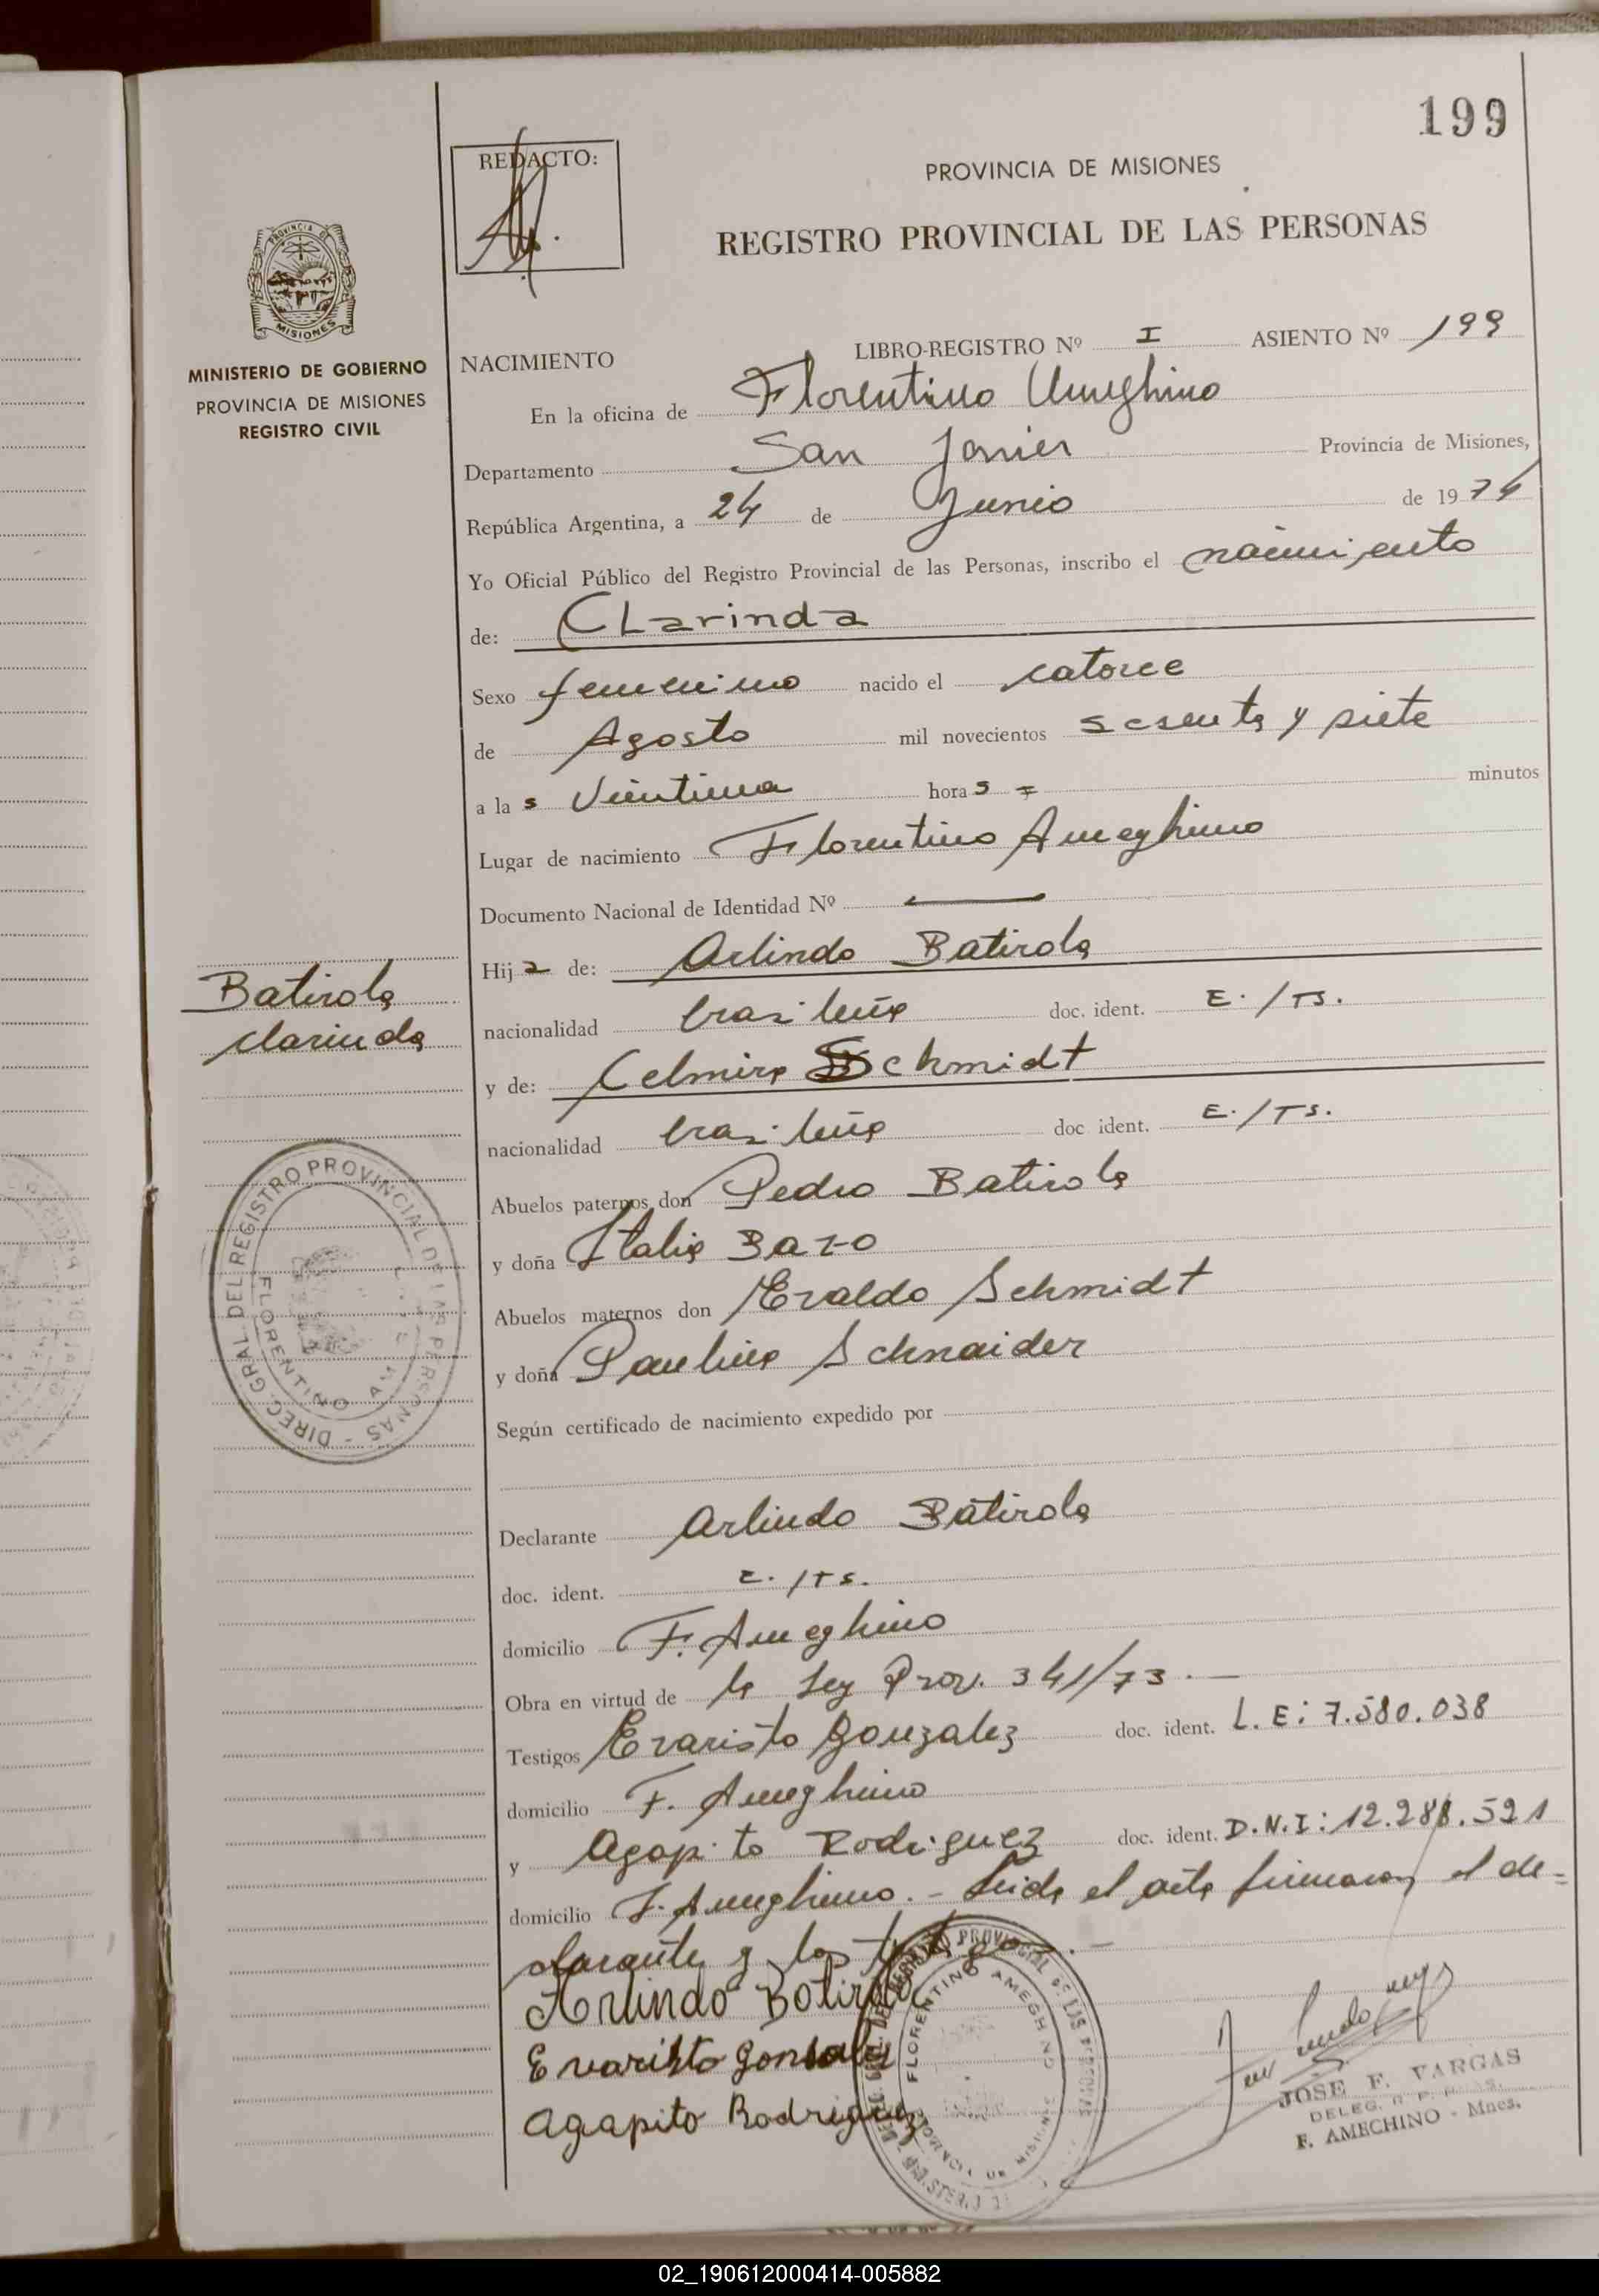 199
REDACTO:
PROVINCIA DE MISIONES
REGISTRO PROVINCIAL DE LAS PERSONAS
PROVINCIA DE
MISIONES
MINISTERIO DE GOBIERNO
PROVINCIA DE MISIONES
REGISTRO CIVIL
NACIMIENTO LIBRO-REGISTRO Nº I ASIENTO Nº 199
En la oficina de Florentino Ameghino
Departamento San Javier Provincia de Misiones,
República Argentina, a 24 de Junio de 1974
Yo Oficial Público del Registro Provincial de las Personas, inscribo el nacimiento
de: CLarinda
Sexo femenino nacido el catorce
de Agosto mil novecientos sesenta y siete
a las Vientiuna horas = minutos
Lugar de nacimiento Florentino Ameghino
Documento Nacional de Identidad Nº —
Hija de: Arlindo Batirola
Batirola
clarinda
nacionalidad brasileña doc. ident. E./TS.
y de: Celmira Schmidt
nacionalidad brasileña doc ident. E./TS.
Abuelos paternos don Pedro Batirola
y doña Italia Bazo
Abuelos maternos don Evaldo Schmidt
y doña Paulina Schnaider
DIREC. GRAL. DEL REGISTRO PROVINCIAL DE LAS PERSONAS -
FLORENTINO AM
Según certificado de nacimiento expedido por
Declarante Arlindo Batirola
doc. ident. E./TS.
domicilio F. Ameghino
Obra en virtud de la Ley Prov. 341/73.—
Testigos Evaristo Gonzalez doc. ident. L.E: 7.580.038
domicilio F. Ameghino
y Agapito Rodriguez doc. ident. D.N.I: 12.288.521
domicilio F. Ameghino.- Leida el acta firmaron el de=
clarante y los testigos.—
Arlindo Batirola
Evaristo Gonsalez
Agapito Rodriguez
DEL REGISTRO PROVINCIAL DE LAS PERSONAS
FLORENTINO AMEGHINO
PROVINCIA DE MISIONES
JOSE F. VARGAS
DELEG. R. P.
F. AMECHINO - Mnes.
02_190612000414-005882